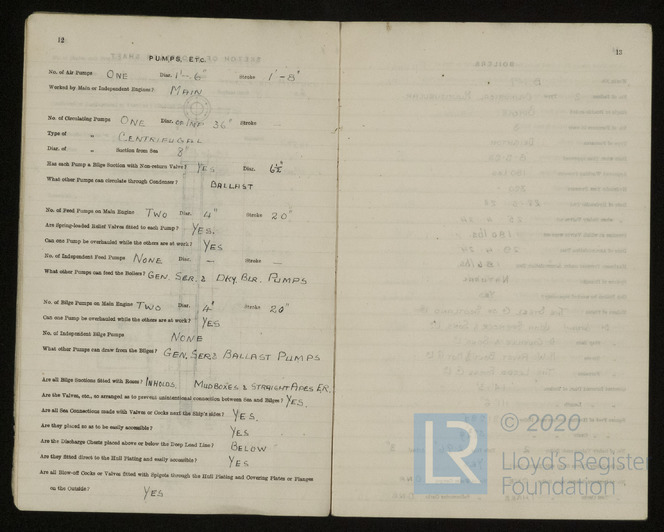 12
PUMPS, ETC.
No. of Air Pumps ONE Diar. 1'-6" Stroke 1'-8"
Worked by Main or Independent Engines? MAIN
No. of Circulating Pumps ONE Diar. OF IMP 36" Stroke —
Type of " CENTRIFUGAL
Diar. of " Suction from Sea 8"
Has each Pump a Bilge Suction with Non-return Valve? YES Diar. 6½"
What other Pumps can circulate through Condenser? BALLAST
No. of Feed Pumps on Main Engine TWO Diar. 4" Stroke 20"
Are Spring-loaded Relief Valves fitted to each Pump? YES.
Can one Pump be overhauled while the others are at work? YES
No. of Independent Feed Pumps NONE Diar. — Stroke —
What other Pumps can feed the Boilers? GEN. SER. & DKY. BLR. PUMPS
No. of Bilge Pumps on Main Engine TWO Diar. 4" Stroke 20"
Can one Pump be overhauled while the others are at work? YES
No. of Independent Bilge Pumps NONE
What other Pumps can draw from the Bilges? GEN. SER & BALLAST PUMPS
Are all Bilge Suctions fitted with Roses? IN HOLDS. MUDBOXES & STRAIGHT PIPES E.R.
Are the Valves, etc., so arranged as to prevent unintentional connection between Sea and Bilges? YES.
Are all Sea Connections made with Valves or Cocks next the Ship's sides? YES.
Are they placed so as to be easily accessible? YES
Are the Discharge Chests placed above or below the Deep Load Line? BELOW
Are they fitted direct to the Hull Plating and easily accessible? YES
Are all Blow-off Cocks or Valves fitted with Spigots through the Hull Plating and Covering Plates or Flanges
on the Outside? YES
13
© 2020
LR
Lloyd's Register
Foundation